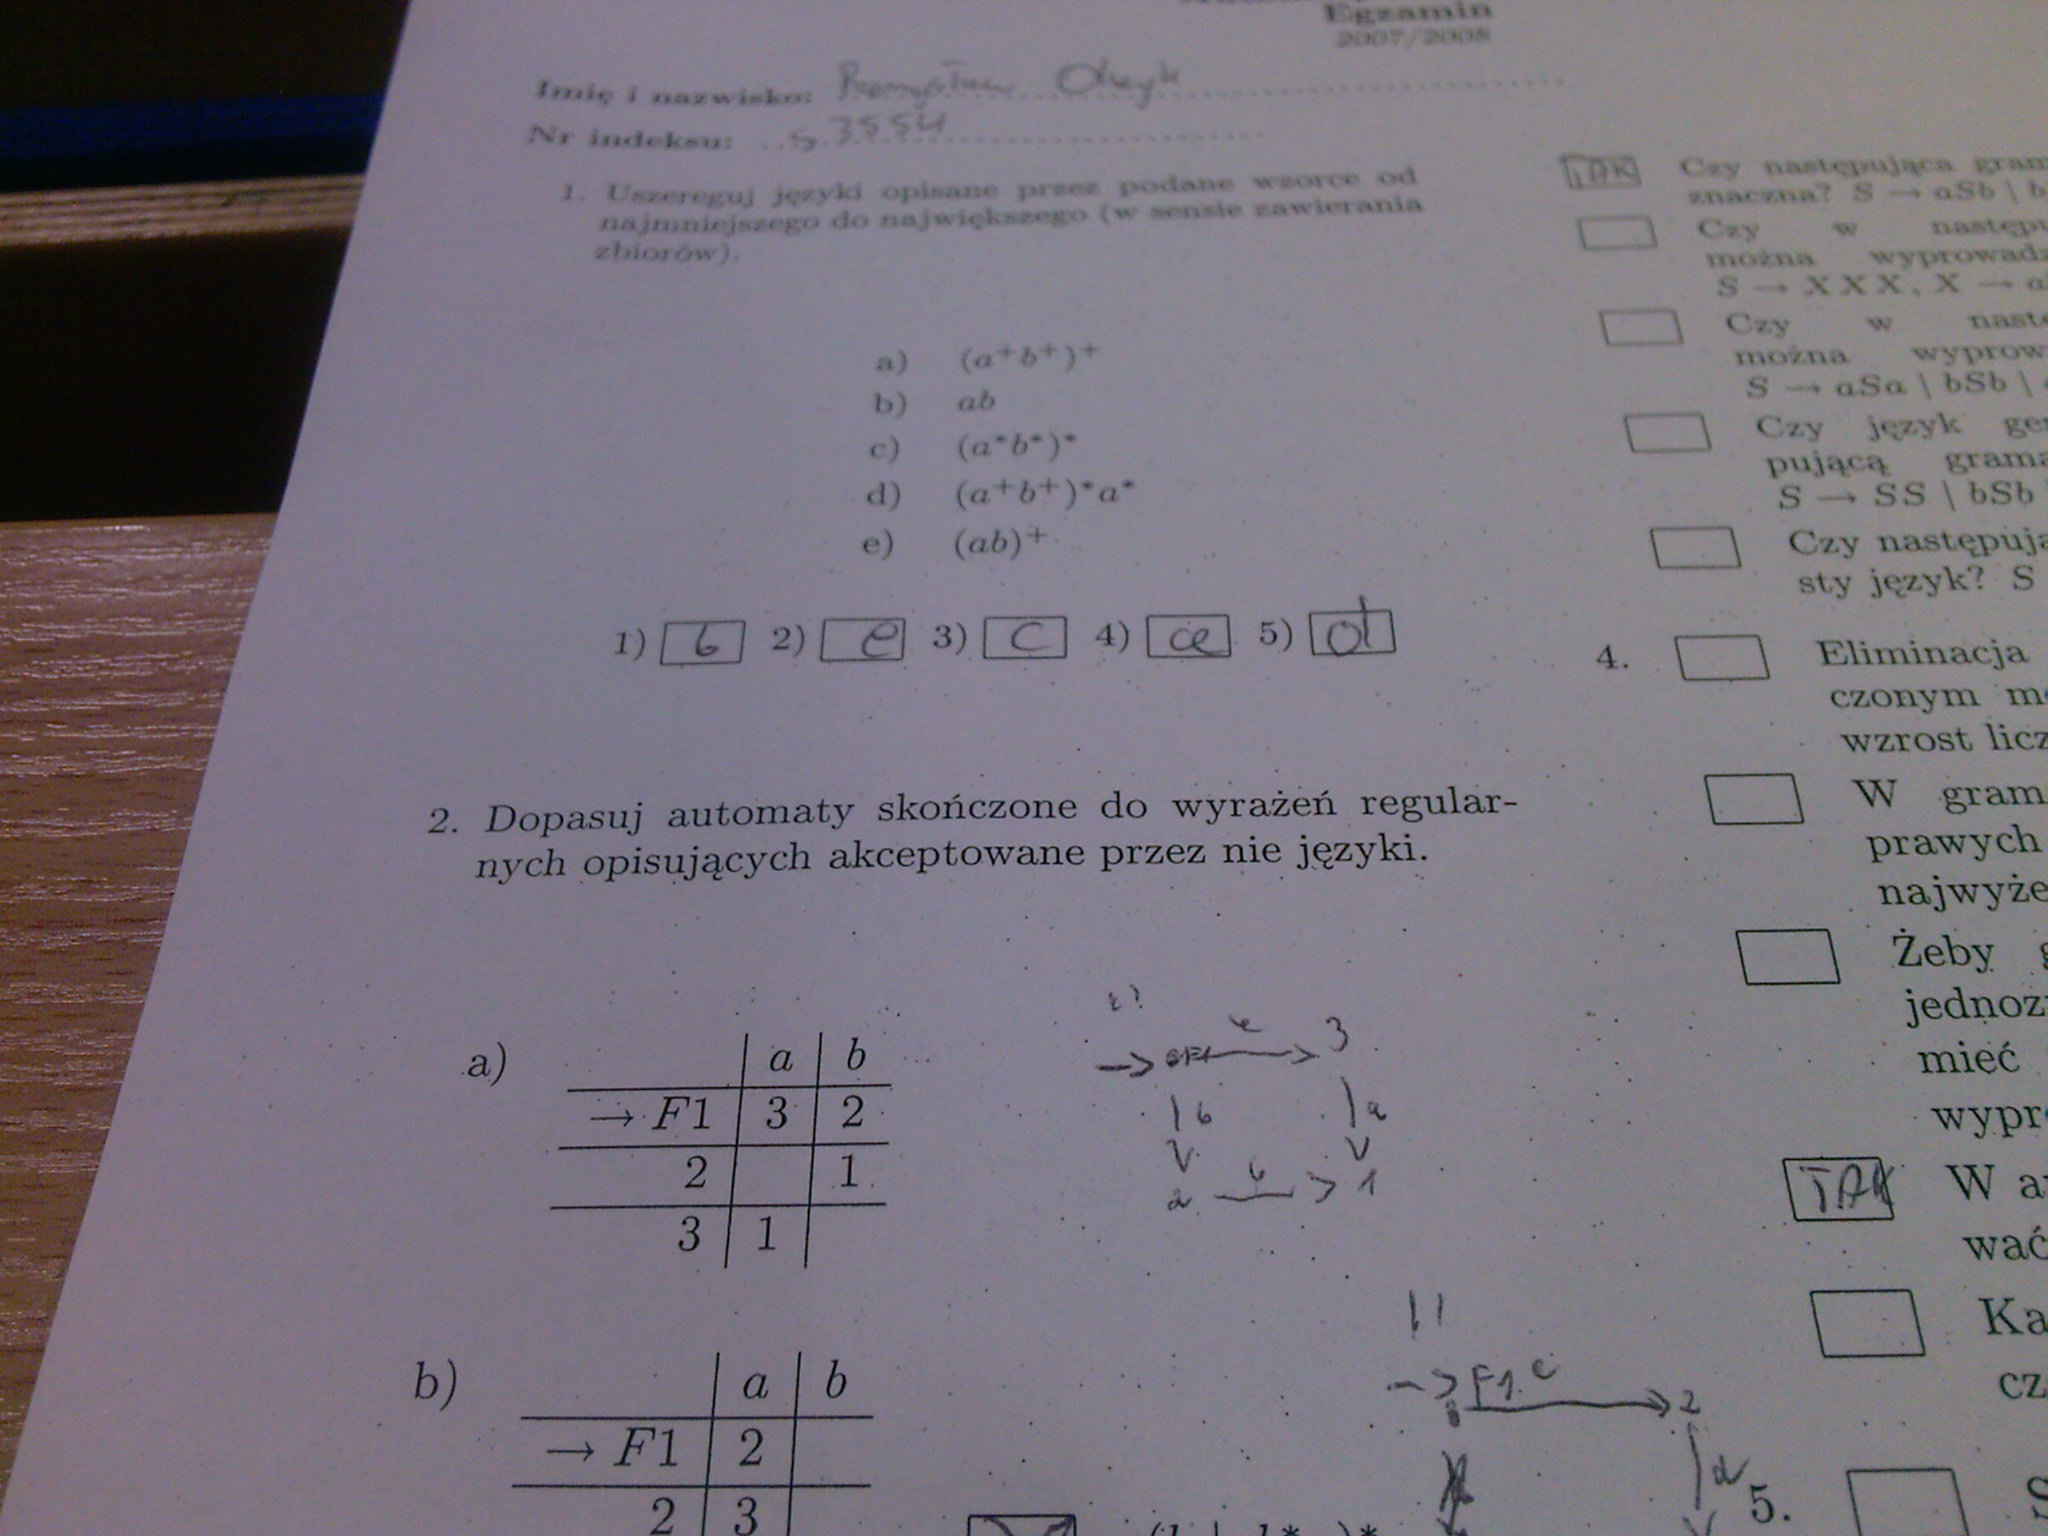 Egzamin
2007/2008
Imię i nazwisko:
Nr indeksu: s 3554
1. Uszereguj języki opisane przez podane wzorce od
najmniejszego do największego (w sensie zawierania
zbiorów).
a) (a⁺b⁺)⁺
b) ab
c) (a*b*)*
d) (a⁺b⁺)*a*
e) (ab)⁺
1) b 2) e 3) c 4) a 5) d
2. Dopasuj automaty skończone do wyrażeń regular-
nych opisujących akceptowane przez nie języki.
a)
a b
→ F1 3 2
2 1
3 1
→ F1 a 3
b a
2 b 1
b)
a b
→ F1 2
2 3
→ F1 2
a
TAK Czy następująca gram
znaczna? S → aSb | b
Czy w następ
można wyprowad
S → XXX, X → a
Czy w nast
można wyprow
S → aSa | bSb |
Czy język ge
pującą grama
S → SS | bSb
Czy następują
sty język? S
4. Eliminacja
czonym m
wzrost licz
W gram
prawych
najwyże
Żeby
jednoz
mieć
wypr
TAK W a
wać
Ka
cz
5. S